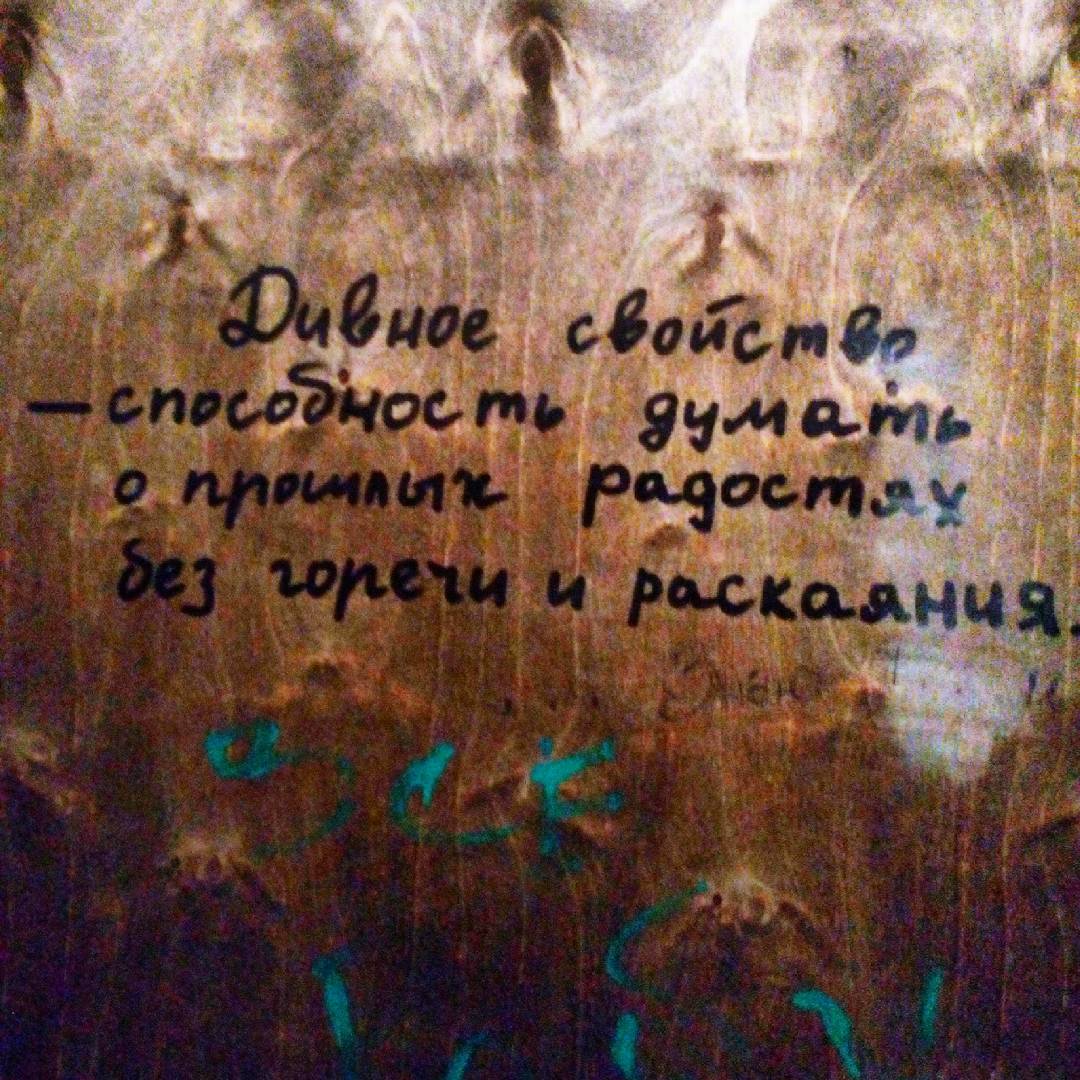 Дивное свойство
— способность думать
о прошлых радостях
без горечи и раскаяния.